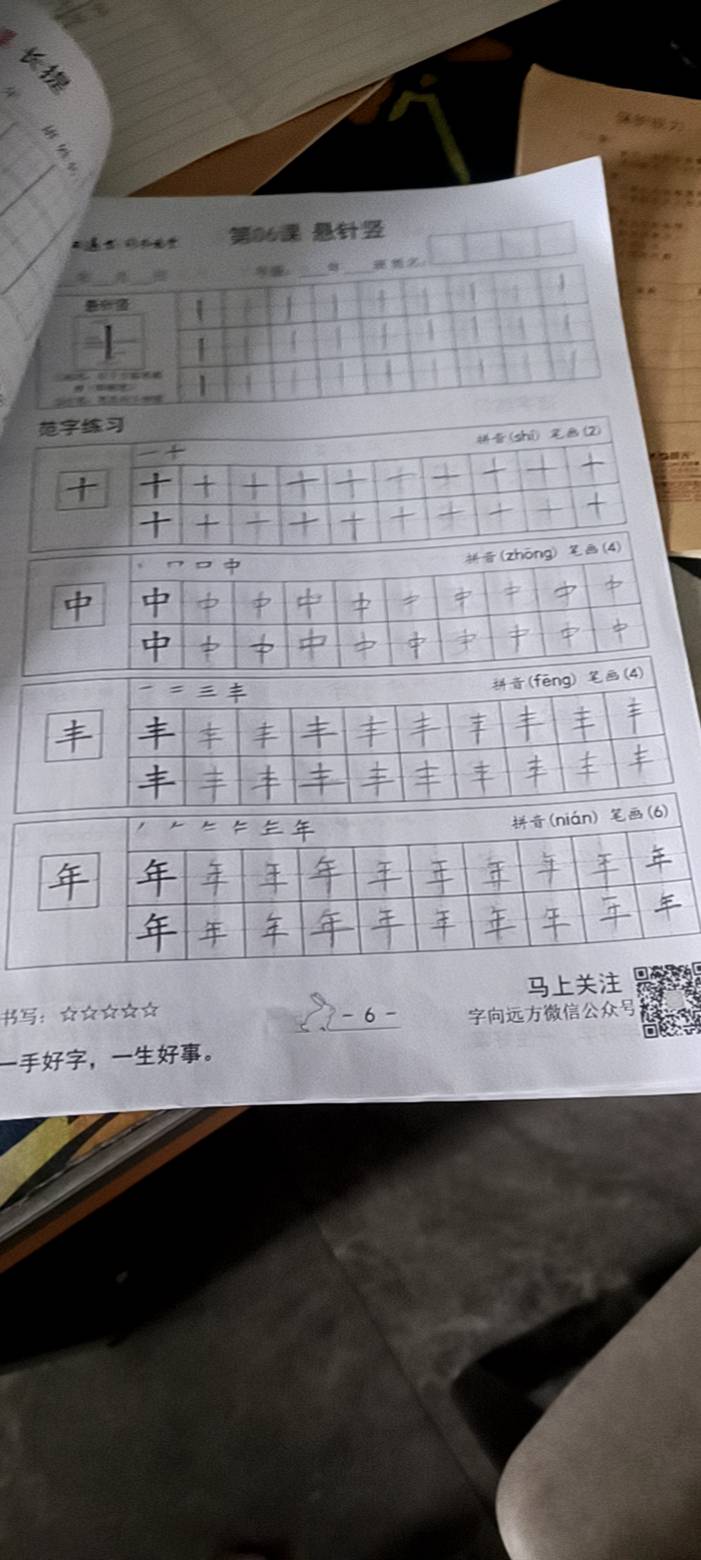 长提
第06课 悬针竖
悬针竖
范字练习
一 十 拼音(shí) 笔画(2)
十 十 十 十 十 十 十 十 十 十 十
十 十 十 十 十 十 十 十 十 十
丨 口 中 拼音(zhōng) 笔画(4)
中 中 中 中 中 中 中 中 中 中 中
中 中 中 中 中 中 中 中 中 中
一 二 三 丰 拼音(fēng) 笔画(4)
丰 丰 丰 丰 丰 丰 丰 丰 丰 丰 丰
丰 丰 丰 丰 丰 丰 丰 丰 丰 丰
年 拼音(nián) 笔画(6)
年 年 年 年 年 年 年 年 年 年 年
年 年 年 年 年 年 年 年 年 年
书写：☆☆☆☆☆
- 6 -
马上关注
字向远方微信公众号
一手好字，一生好事。
保护视力